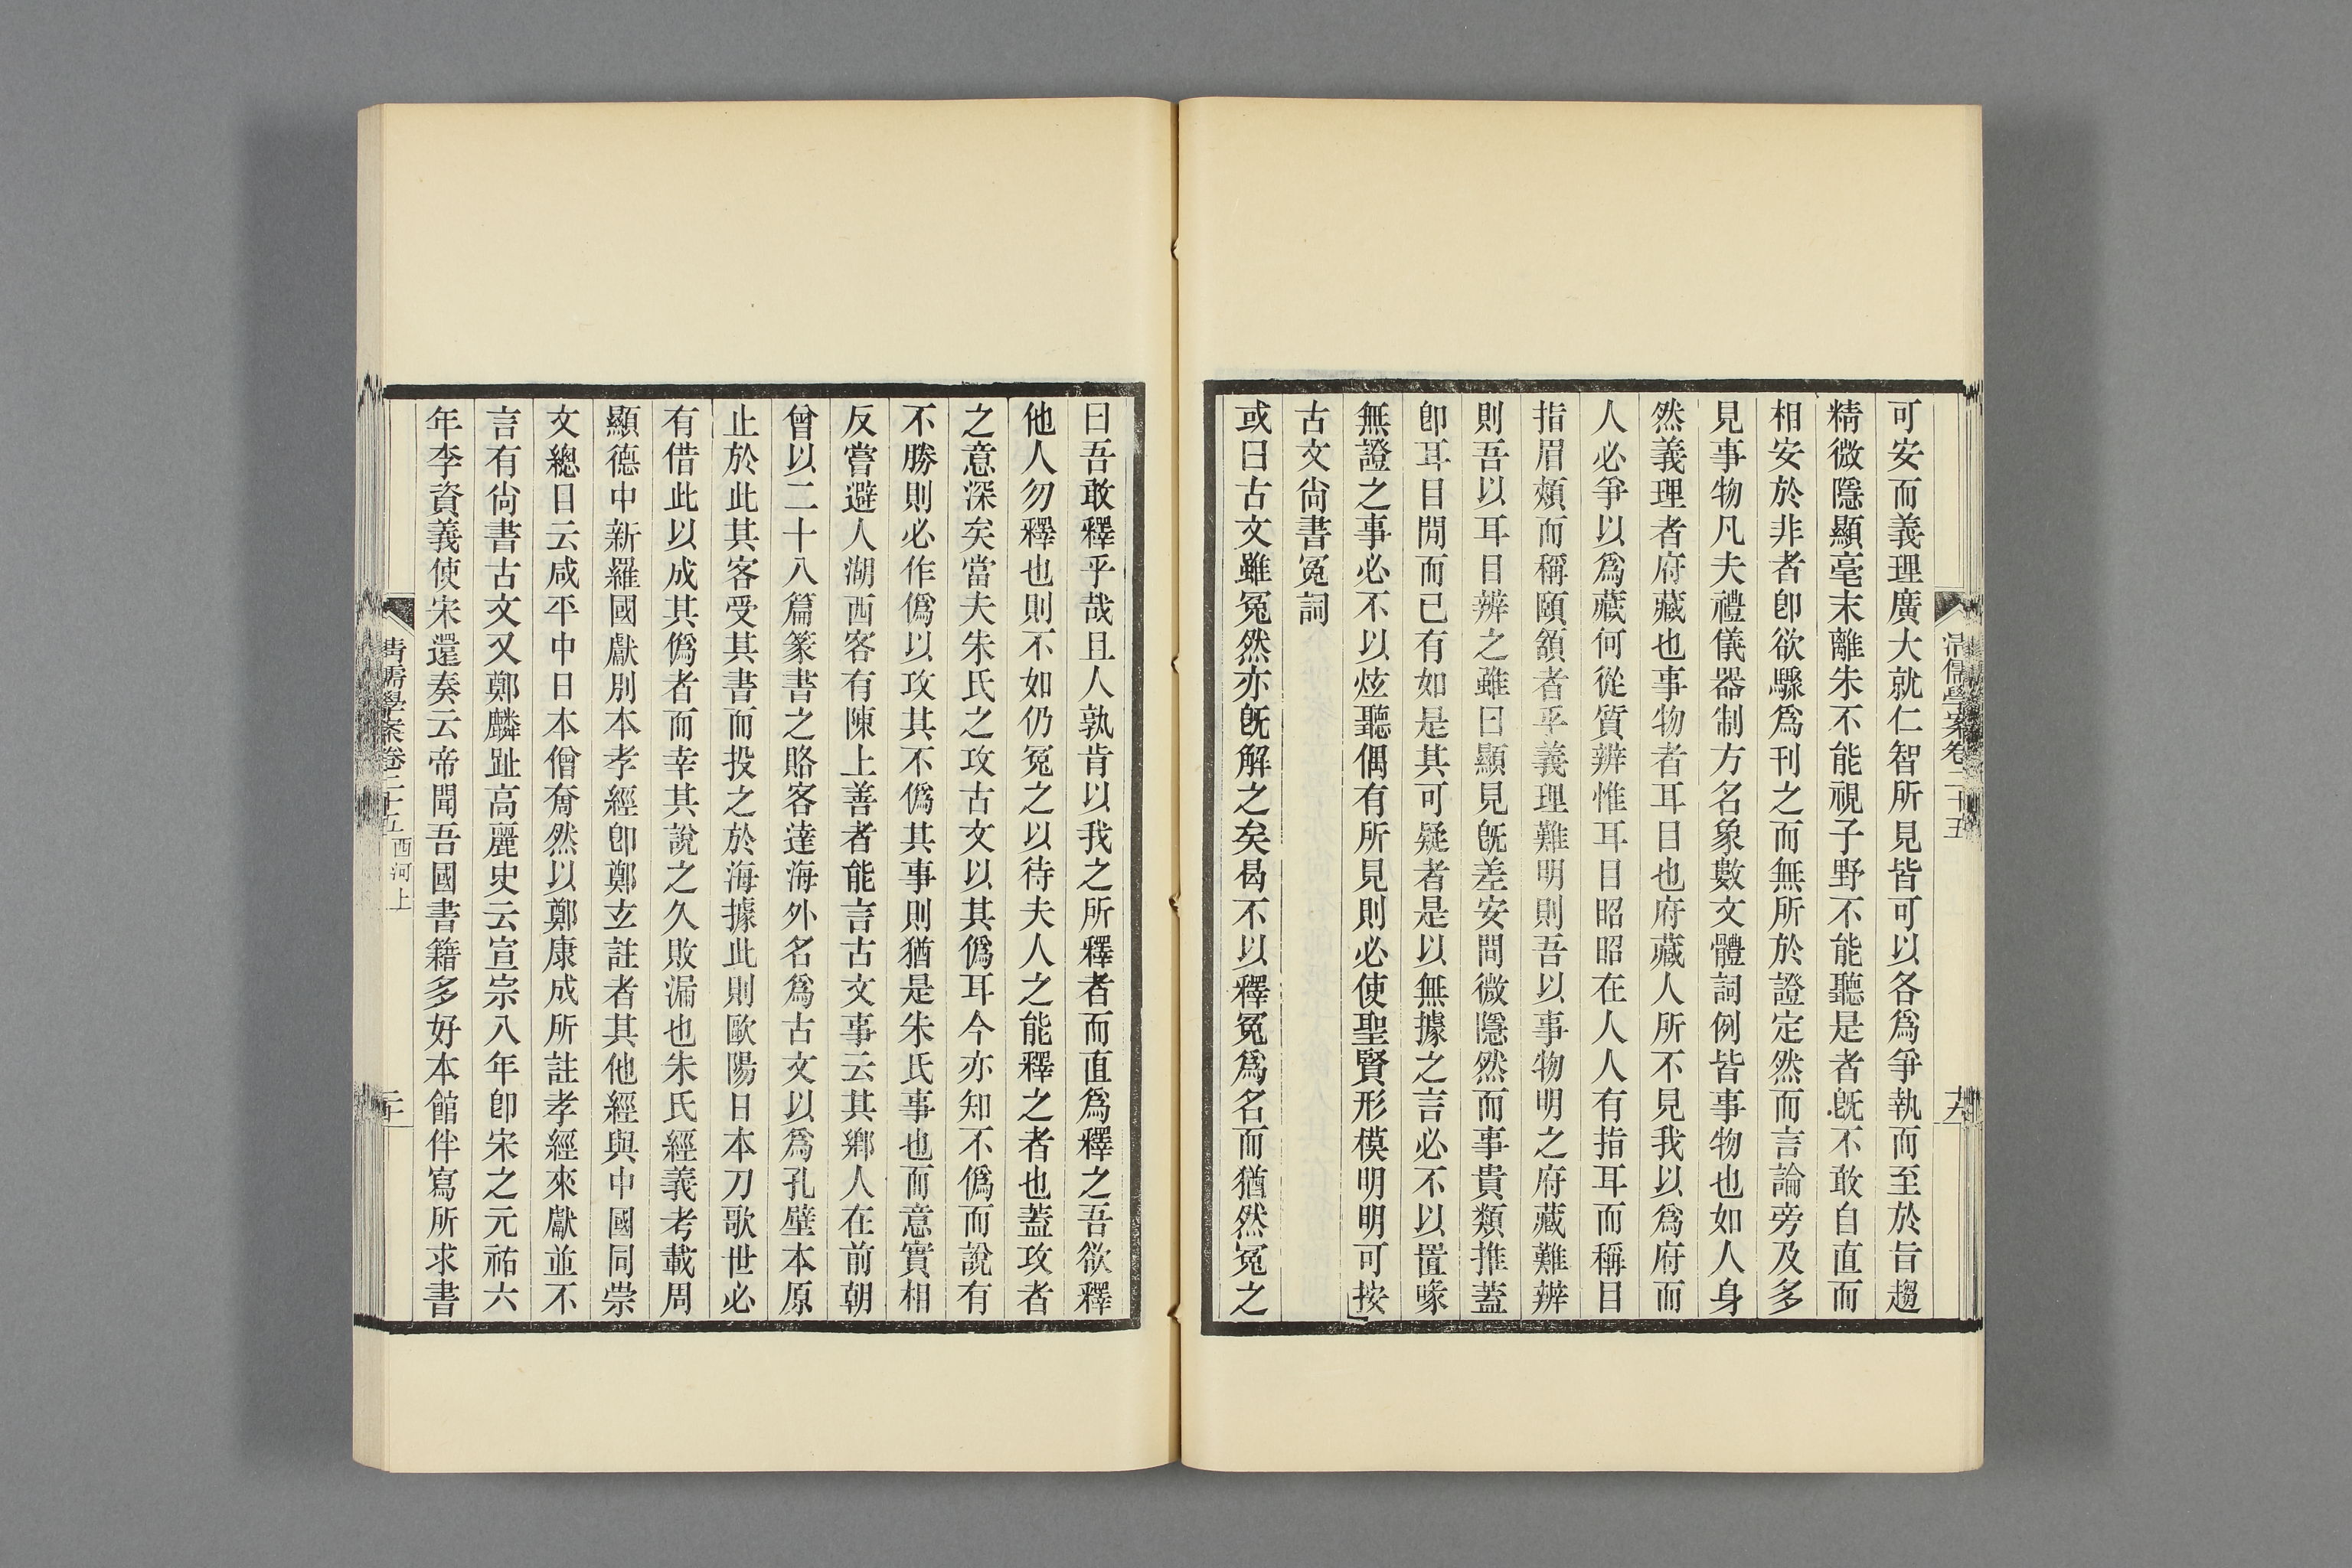 清儒學案卷二十五
可安而義理廣大就仁智所見皆可以各爲爭執而至於旨趨
精微隱顯毫末離朱不能視子野不能聽是者旣不敢自直而
相安於非者卽欲驟爲刊之而無所於證定然而言論旁及多
見事物凡夫禮儀器制方名象數文體詞例皆事物也如人身
然義理者府藏也事物者耳目也府藏人所不見我以爲府而
人必爭以爲藏何從質辨惟耳目昭昭在人人有指耳而稱目
指眉頰而稱頤頷者乎義理難明則吾以事物明之府藏難辨
則吾以耳目辨之雖曰顯見旣差安問微隱然而事貴類推蓋
卽耳目閒而已有如是其可疑者是以無據之言必不以置喙
無證之事必不以炫聽偶有所見則必使聖賢形模明明可按
古文尙書冤詞
或曰古文雖冤然亦旣解之矣曷不以釋冤爲名而猶然冤之
曰吾敢釋乎哉且人孰肯以我之所釋者而直爲釋之吾欲釋
他人勿釋也則不如仍冤之以待夫人之能釋之者也蓋攻者
之意深矣當夫朱氏之攻古文以其僞耳今亦知不僞而說有
不勝則必作僞以攻其不僞其事則猶是朱氏事也而意實相
反嘗避人湖西客有陳上善者能言古文事云其鄉人在前朝
曾以二十八篇篆書之賂客達海外名爲古文以爲孔壁本原
止於此其客受其書而投之於海據此則歐陽日本刀歌世必
有借此以成其僞者而幸其說之久敗漏也朱氏經義考載周
顯德中新羅國獻別本孝經卽鄭玄註者其他經與中國同崇
文總目云咸平中日本僧奝然以鄭康成所註孝經來獻並不
言有尙書古文又鄭麟趾高麗史云宣宗八年卽宋之元祐六
年李資義使宋還奏云帝聞吾國書籍多好本館伴寫所求書
清儒學案卷二十五 西河上